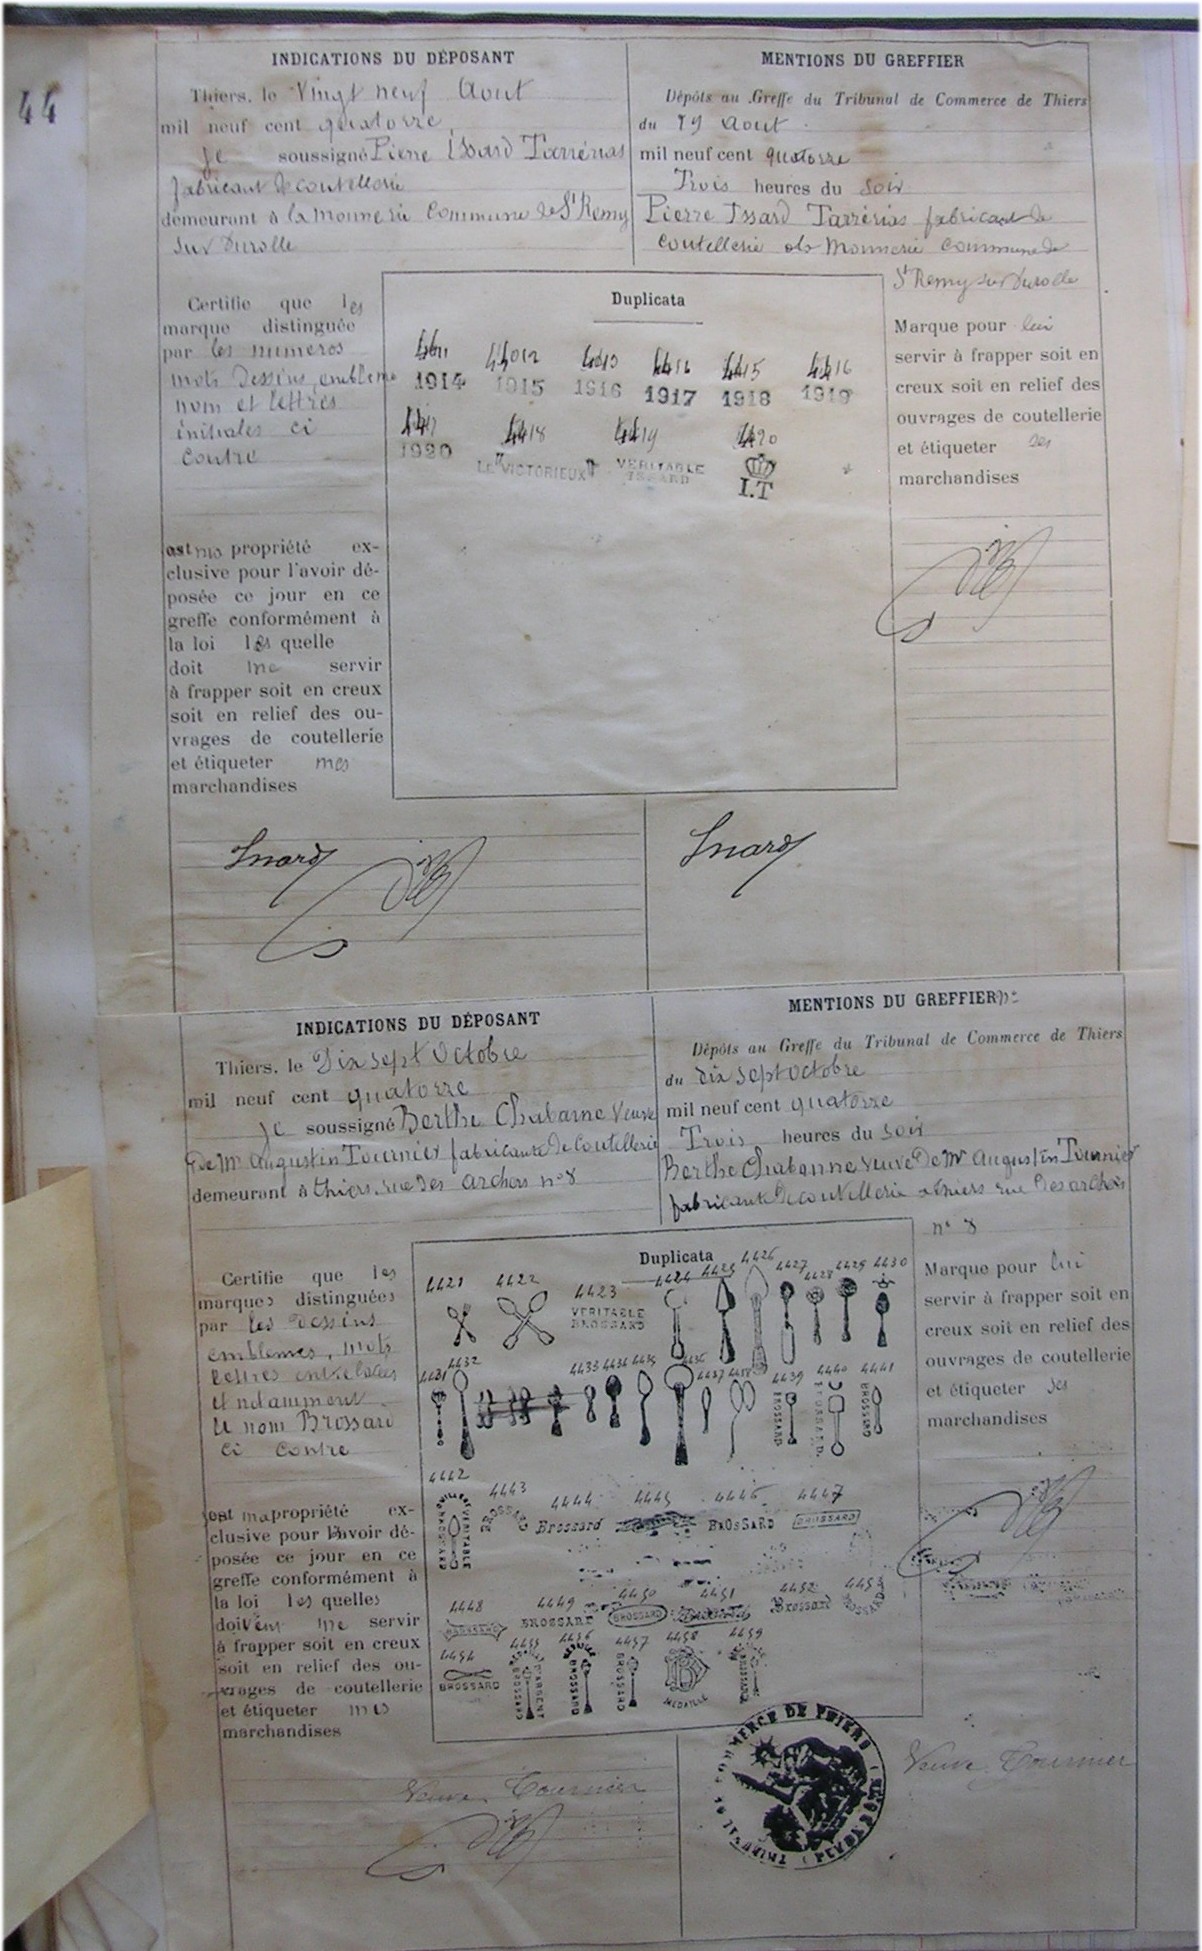 44
INDICATIONS DU DÉPOSANT
Thiers, le Vingt neuf Aout
mil neuf cent quatorze
Je soussigné Pierre Issard Tarrérias
fabricant de coutellerie
demeurant à la monnerie Commune de St Remy
Sur Durolle
MENTIONS DU GREFFIER
Dépôts au Greffe du Tribunal de Commerce de Thiers
du 29 Aout
mil neuf cent quatorze
Trois heures du Soir
Pierre Issard Tarrérias fabricant de
coutellerie à la Monnerie commune de
St Remy sur Durolle
Certifie que les
marque distinguée
par les numeros
mots dessins, embleme
nom et lettres
initiales ci
contre
est ma propriété ex-
clusive pour l'avoir dé-
posée ce jour en ce
greffe conformément à
la loi les quelle
doit me servir
à frapper soit en creux
soit en relief des ou-
vrages de coutellerie
et étiqueter mes
marchandises
Duplicata
4411 4412 4413 4414 4415 4416
1914 1915 1916 1917 1918 1919
4417 4418 4419 4420
1920 LE "VICTORIEUX" VERITABLE
ISSARD
I.T
Marque pour lui
servir à frapper soit en
creux soit en relief des
ouvrages de coutellerie
et étiqueter ses
marchandises
Issard
Issard
INDICATIONS DU DÉPOSANT
Thiers, le Dix sept Octobre
mil neuf cent quatorze
Je soussigné Berthe Chabanne Veuve
de Mr Augustin Tournier fabricante de Coutellerie
demeurant à thiers, rue des archers n° 8
MENTIONS DU GREFFIER
Dépôts au Greffe du Tribunal de Commerce de Thiers
du dix Sept Octobre
mil neuf cent quatorze
Trois heures du Soir
Berthe Chabanne Veuve De Mr Augustin Tournier
fabricante de coutellerie a thiers rue des archers
n° 8
Certifie que les
marques distinguées
par les dessins
emblemes, mots
lettres entrelacées
et notamment
le nom Brossard
ci contre
est ma propriété ex-
clusive pour l'avoir dé-
posée ce jour en ce
greffe conformément à
la loi les quelles
doivent me servir
à frapper soit en creux
soit en relief des ou-
vrages de coutellerie
et étiqueter mes
marchandises
Duplicata
4421 4422 4423 4424 4425 4426 4427 4428 4429 4430
VERITABLE
BROSSARD
4431 4432 4433 4434 4435 4436 4437 4438 4439 4440 4441
BROSSARD BROSSARD BROSSARD
4442 4443 4444 4445 4446 4447
BROSSARD VERITABLE BROSSARD Brossard BROSSARD BROSSARD
4448 4449 4450 4451 4452 4453
BROSSARD BROSSARD BROSSARD Brossard BROSSARD
4454 4455 4456 4457 4458 4459
BROSSARD BROSSARD D'ARGENT BROSSARD BROSSARD MEDAILLE BROSSARD
Marque pour lui
servir à frapper soit en
creux soit en relief des
ouvrages de coutellerie
et étiqueter ses
marchandises
Veuve Tournier
Veuve Tournier
TRIBUNAL DE COMMERCE DE THIERS (PUY DE DOME)